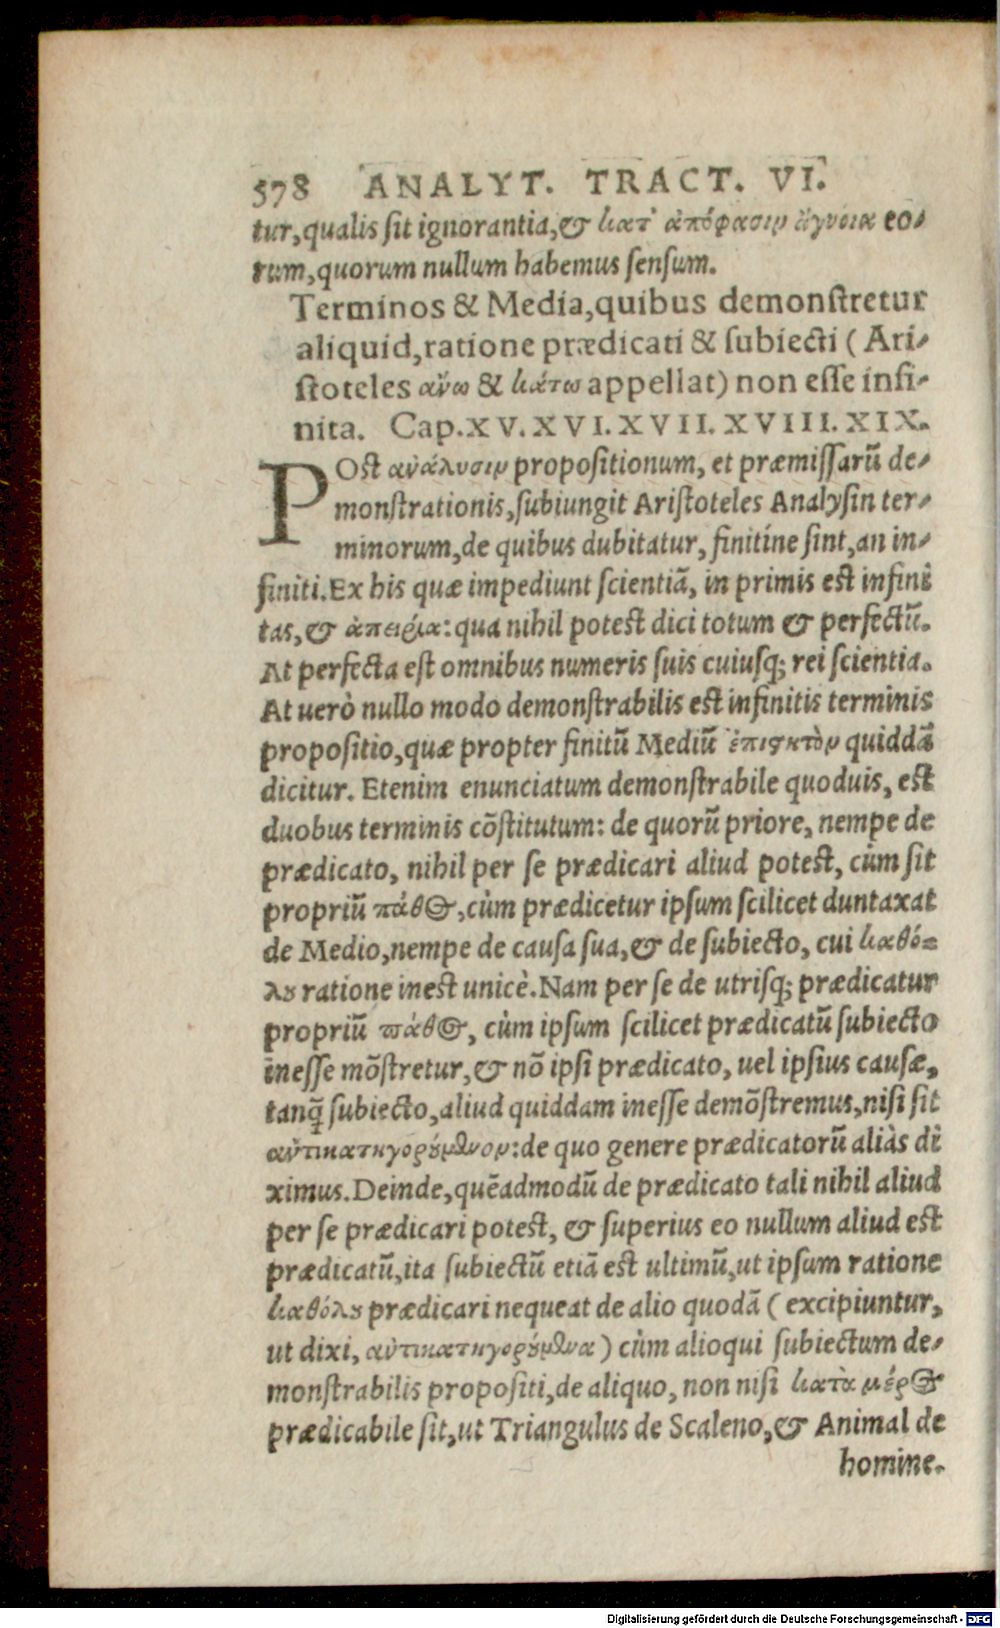 578 ANALYT. TRACT. VI.
tur, qualis sit ignorantia, & κατ' ἀπόφασιν ἄγνοια eo-
rum, quorum nullum habemus sensum.
Terminos & Media, quibus demonstretur
aliquid, ratione prædicati & subiecti ( Ari-
stoteles ἄνω & κάτω appellat) non esse infi-
nita. Cap. XV. XVI. XVII. XVIII. XIX.
POst ἀνάλυσιν propositionum, et præmissarũ de-
monstrationis, subiungit Aristoteles Analysin ter-
minorum, de quibus dubitatur, finitíne sint, an in-
finiti. Ex his quæ impediunt scientiã, in primis est infini
tas, & ἀπειρία: qua nihil potest dici totum & perfectũ.
At perfecta est omnibus numeris suis cuiusq; rei scientia.
At uerò nullo modo demonstrabilis est infinitis terminis
propositio, quæ propter finitũ Mediũ ἐπιστητὸν quiddã
dicitur. Etenim enunciatum demonstrabile quoduis, est
duobus terminis cõstitutum: de quorũ priore, nempe de
prædicato, nihil per se prædicari aliud potest, cùm sit
propriũ πάθος, cùm prædicetur ipsum scilicet duntaxat
de Medio, nempe de causa sua, & de subiecto, cui καθό-
λου ratione inest unicè. Nam per se de utrisq; prædicatur
propriũ πάθος, cùm ipsum scilicet prædicatũ subiecto
inesse mõstretur, & nõ ipsi prædicato, uel ipsius causæ,
tanq̃ subiecto, aliud quiddam inesse demõstremus, nisi sit
ἀντικατηγορούμενον: de quo genere prædicatorũ aliàs di
ximus. Deinde, quẽadmodũ de prædicato tali nihil aliud
per se prædicari potest, & superius eo nullum aliud est
prædicatũ, ita subiectũ etiã est ultimũ, ut ipsum ratione
καθόλου prædicari nequeat de alio quodã ( excipiuntur,
ut dixi, ἀντικατηγορούμενα ) cùm alioqui subiectum de-
monstrabilis propositi, de aliquo, non nisi κατὰ μέρος
prædicabile sit, ut Triangulus de Scaleno, & Animal de
homine.
Digitalisierung gefördert durch die Deutsche Forschungsgemeinschaft - DFG